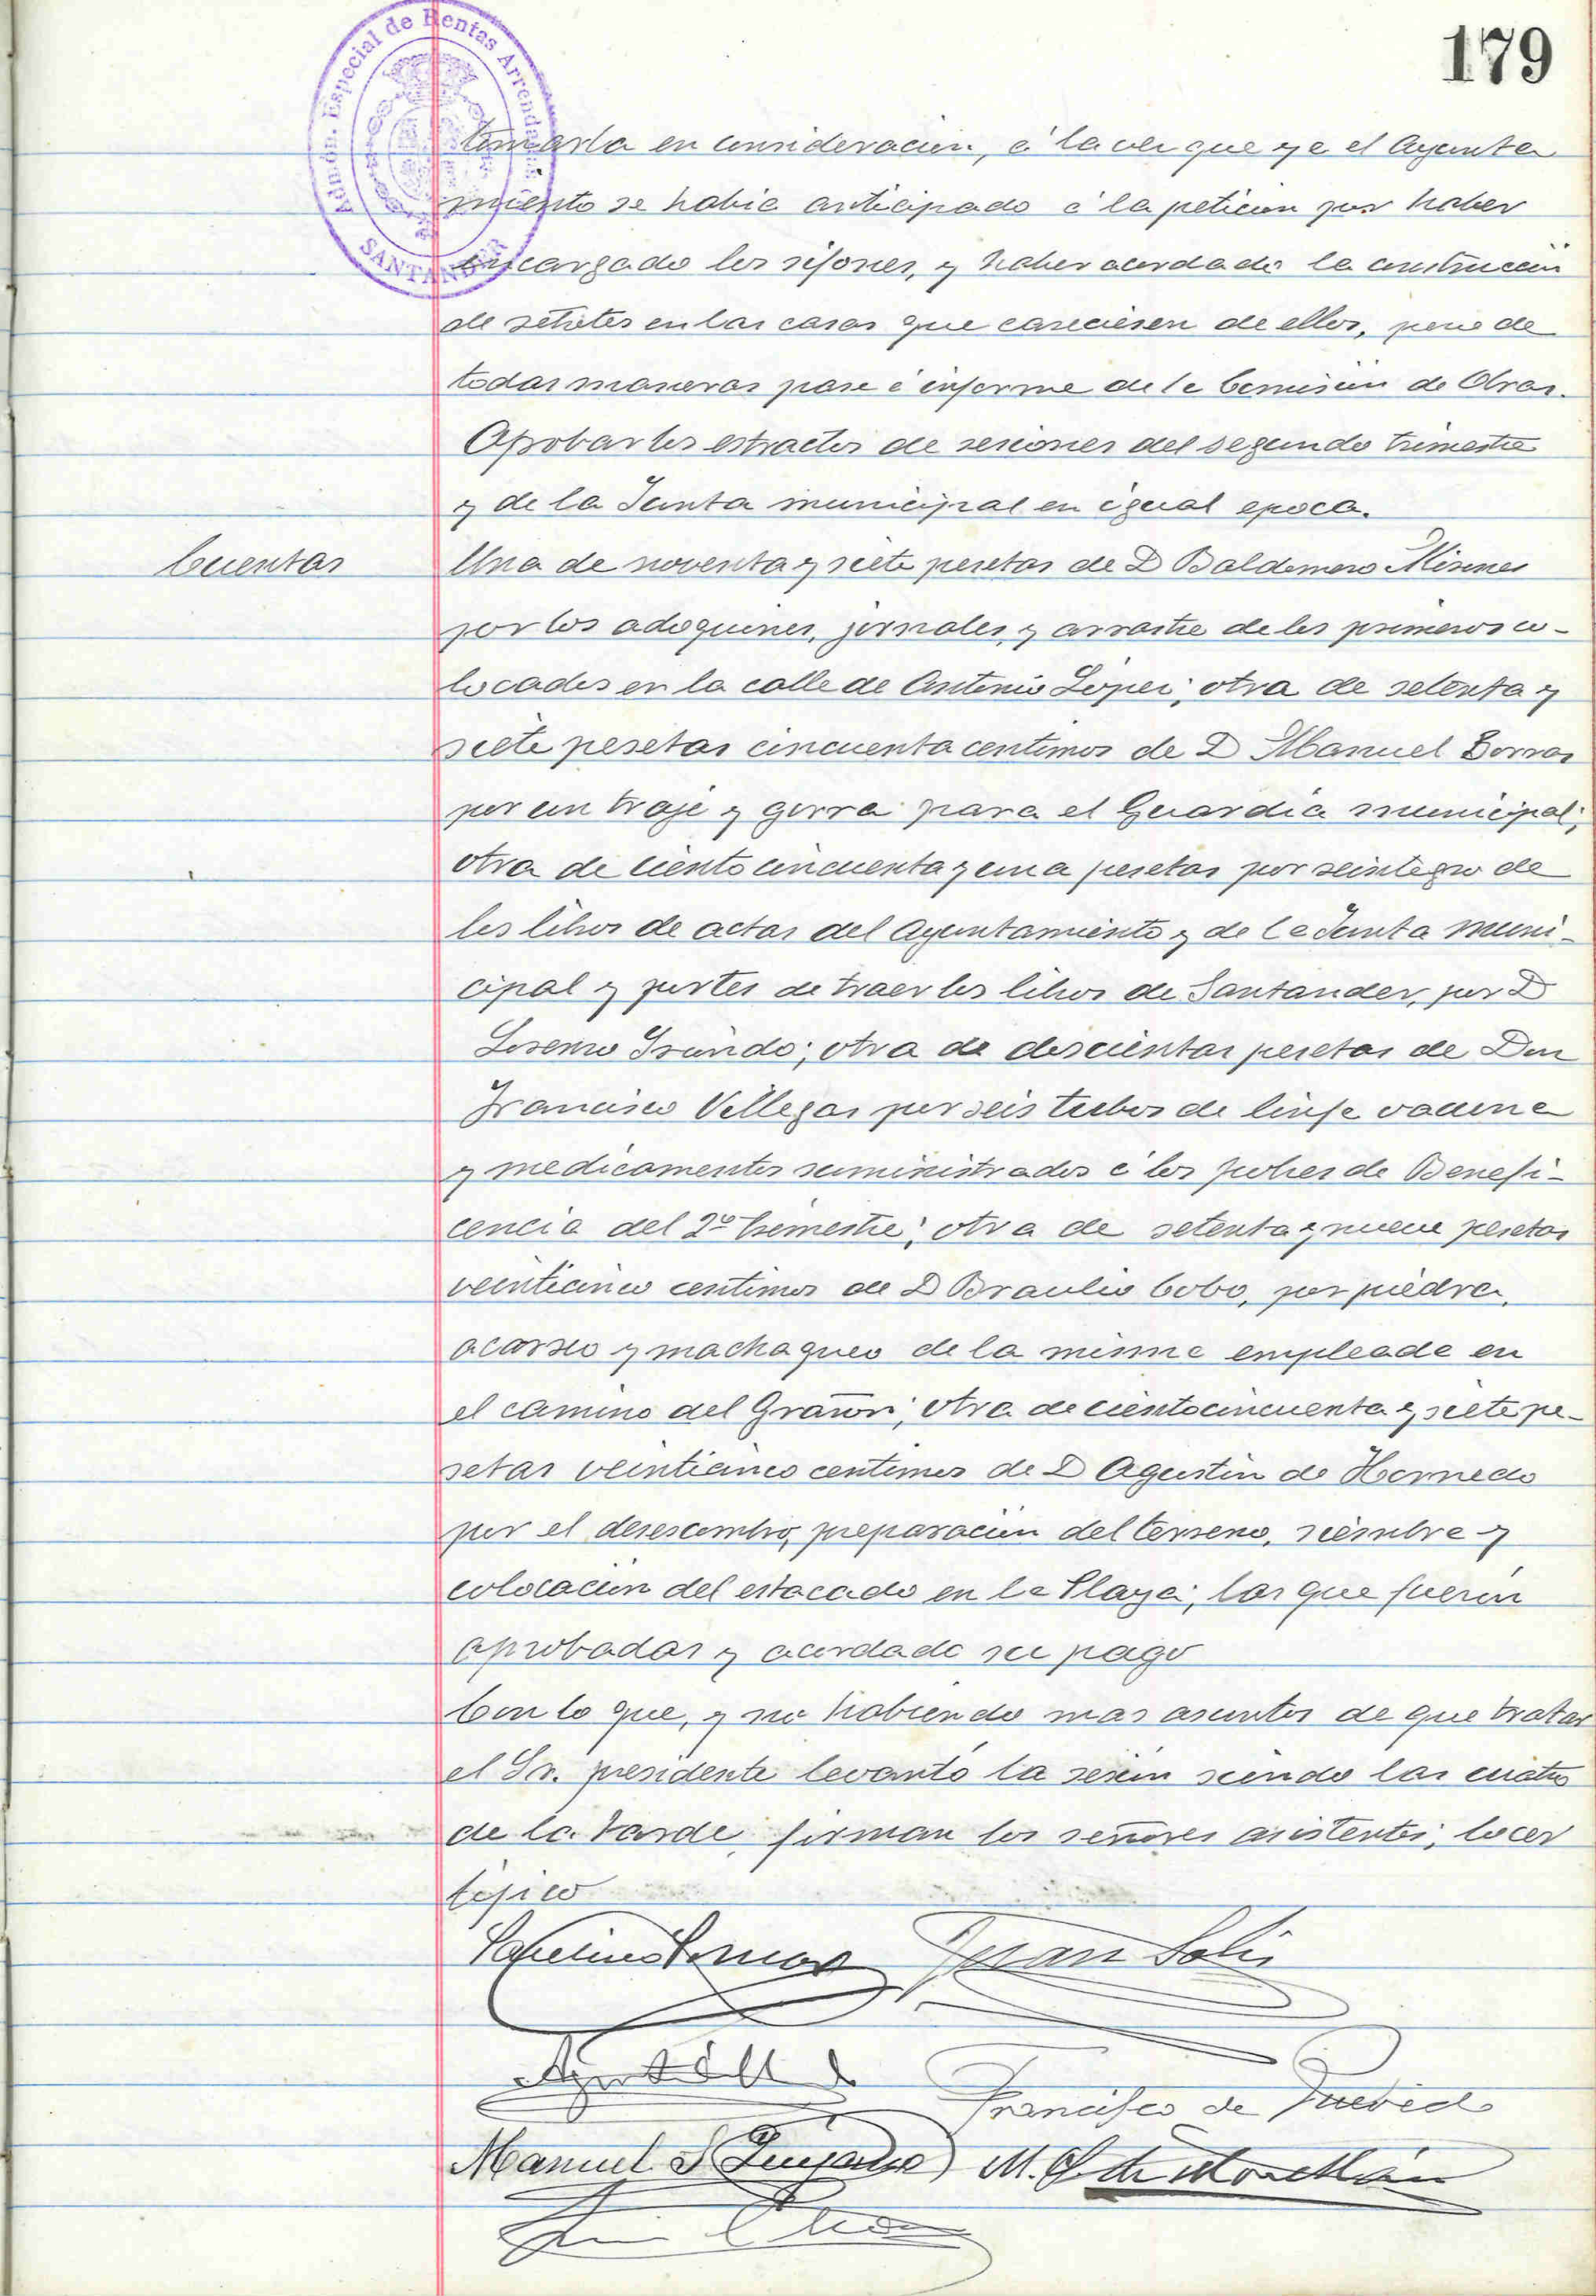 179
Admón. Especial de Rentas Arrendadas
SANTANDER
tomarla en consideracion, á la vez que ya el Ayunta
miento se habia anticipado á la peticion por haber
encargado los sifones, y haber acordado la construccion
de retretes en las casas que careciesen de ellos, pero de
todas maneras pase á informe de la Comision de Obras.
Aprobar los estractos de sesiones del segundo trimestre
y de la Junta municipal en igual epoca.
Cuentas
Una de noventa y siete pesetas de D Baldomero
por los adoquines, jornales, y arrastre de los primeros co-
locados en la calle de Antonio López; otra de setenta y
siete pesetas cincuenta centimos de D Manuel Borras
por un traje y gorra para el Guardia municipal;
otra de ciento cincuenta y una pesetas por reintegro de
los libros de actas del Ayuntamiento y de la Junta muni-
cipal y portes de traer los libros de Santander, por D
Lorenzo; otra de doscientas pesetas de Don
Francisco Villegas por seis tubos de linfa vacuna
y medicamentos suministrados á los pobres de Benefi-
cencia del 2º trimestre; otra de setenta y nueve pesetas
veinticinco centimos de D Braulio Cobo, por piedra,
acarreo y machaqueo de la misma empleada en
el camino del Grañon; otra de ciento cincuenta y siete pe-
setas veinticinco centimos de D Agustin de Hornedo
por el desescombro, preparacion del terreno, siembra y
colocacion del estacado en la Playa; las que fueron
aprobadas y acordado su pago
Con lo que, y no habiendo mas asuntos de que tratar
el Sr. presidente levantó la sesion siendo las cuatro
de la tarde, firman los señores asistentes; lo cer
tifico
Juan Solis
Francisco de Quevedo
Manuel S Quijano
M.